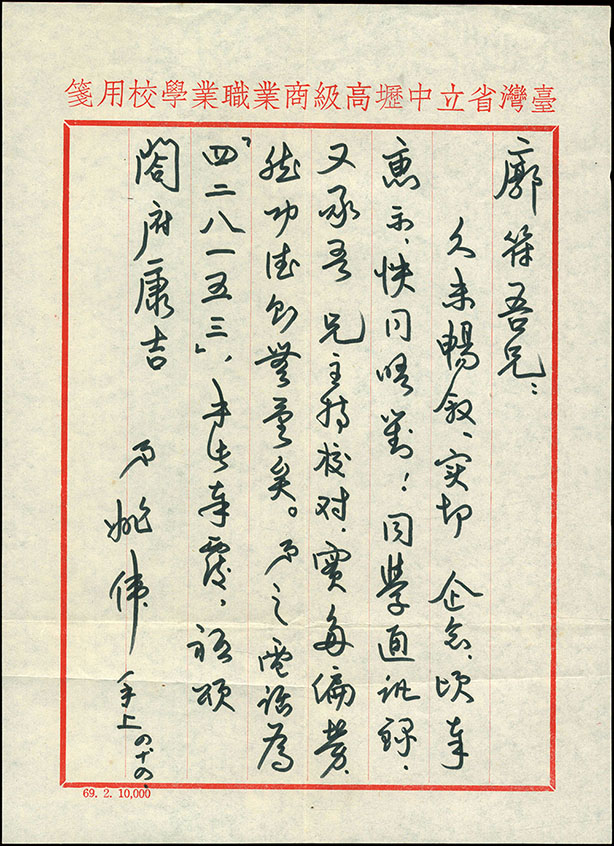 臺灣省立中壢高級商業職業學校用箋
廓符吾兄：
久未暢敘、實切 企念、頃奉
惠示、快同晤對！同學通訊錄、
又承吾 兄主持校对、實多偏勞、
然功德亦無量矣。弟之電話為
「四二八一五三」、專此奉覆、祗頌
閤府康吉
弟 姚偉 手上 四、十四、
69. 2. 10,000